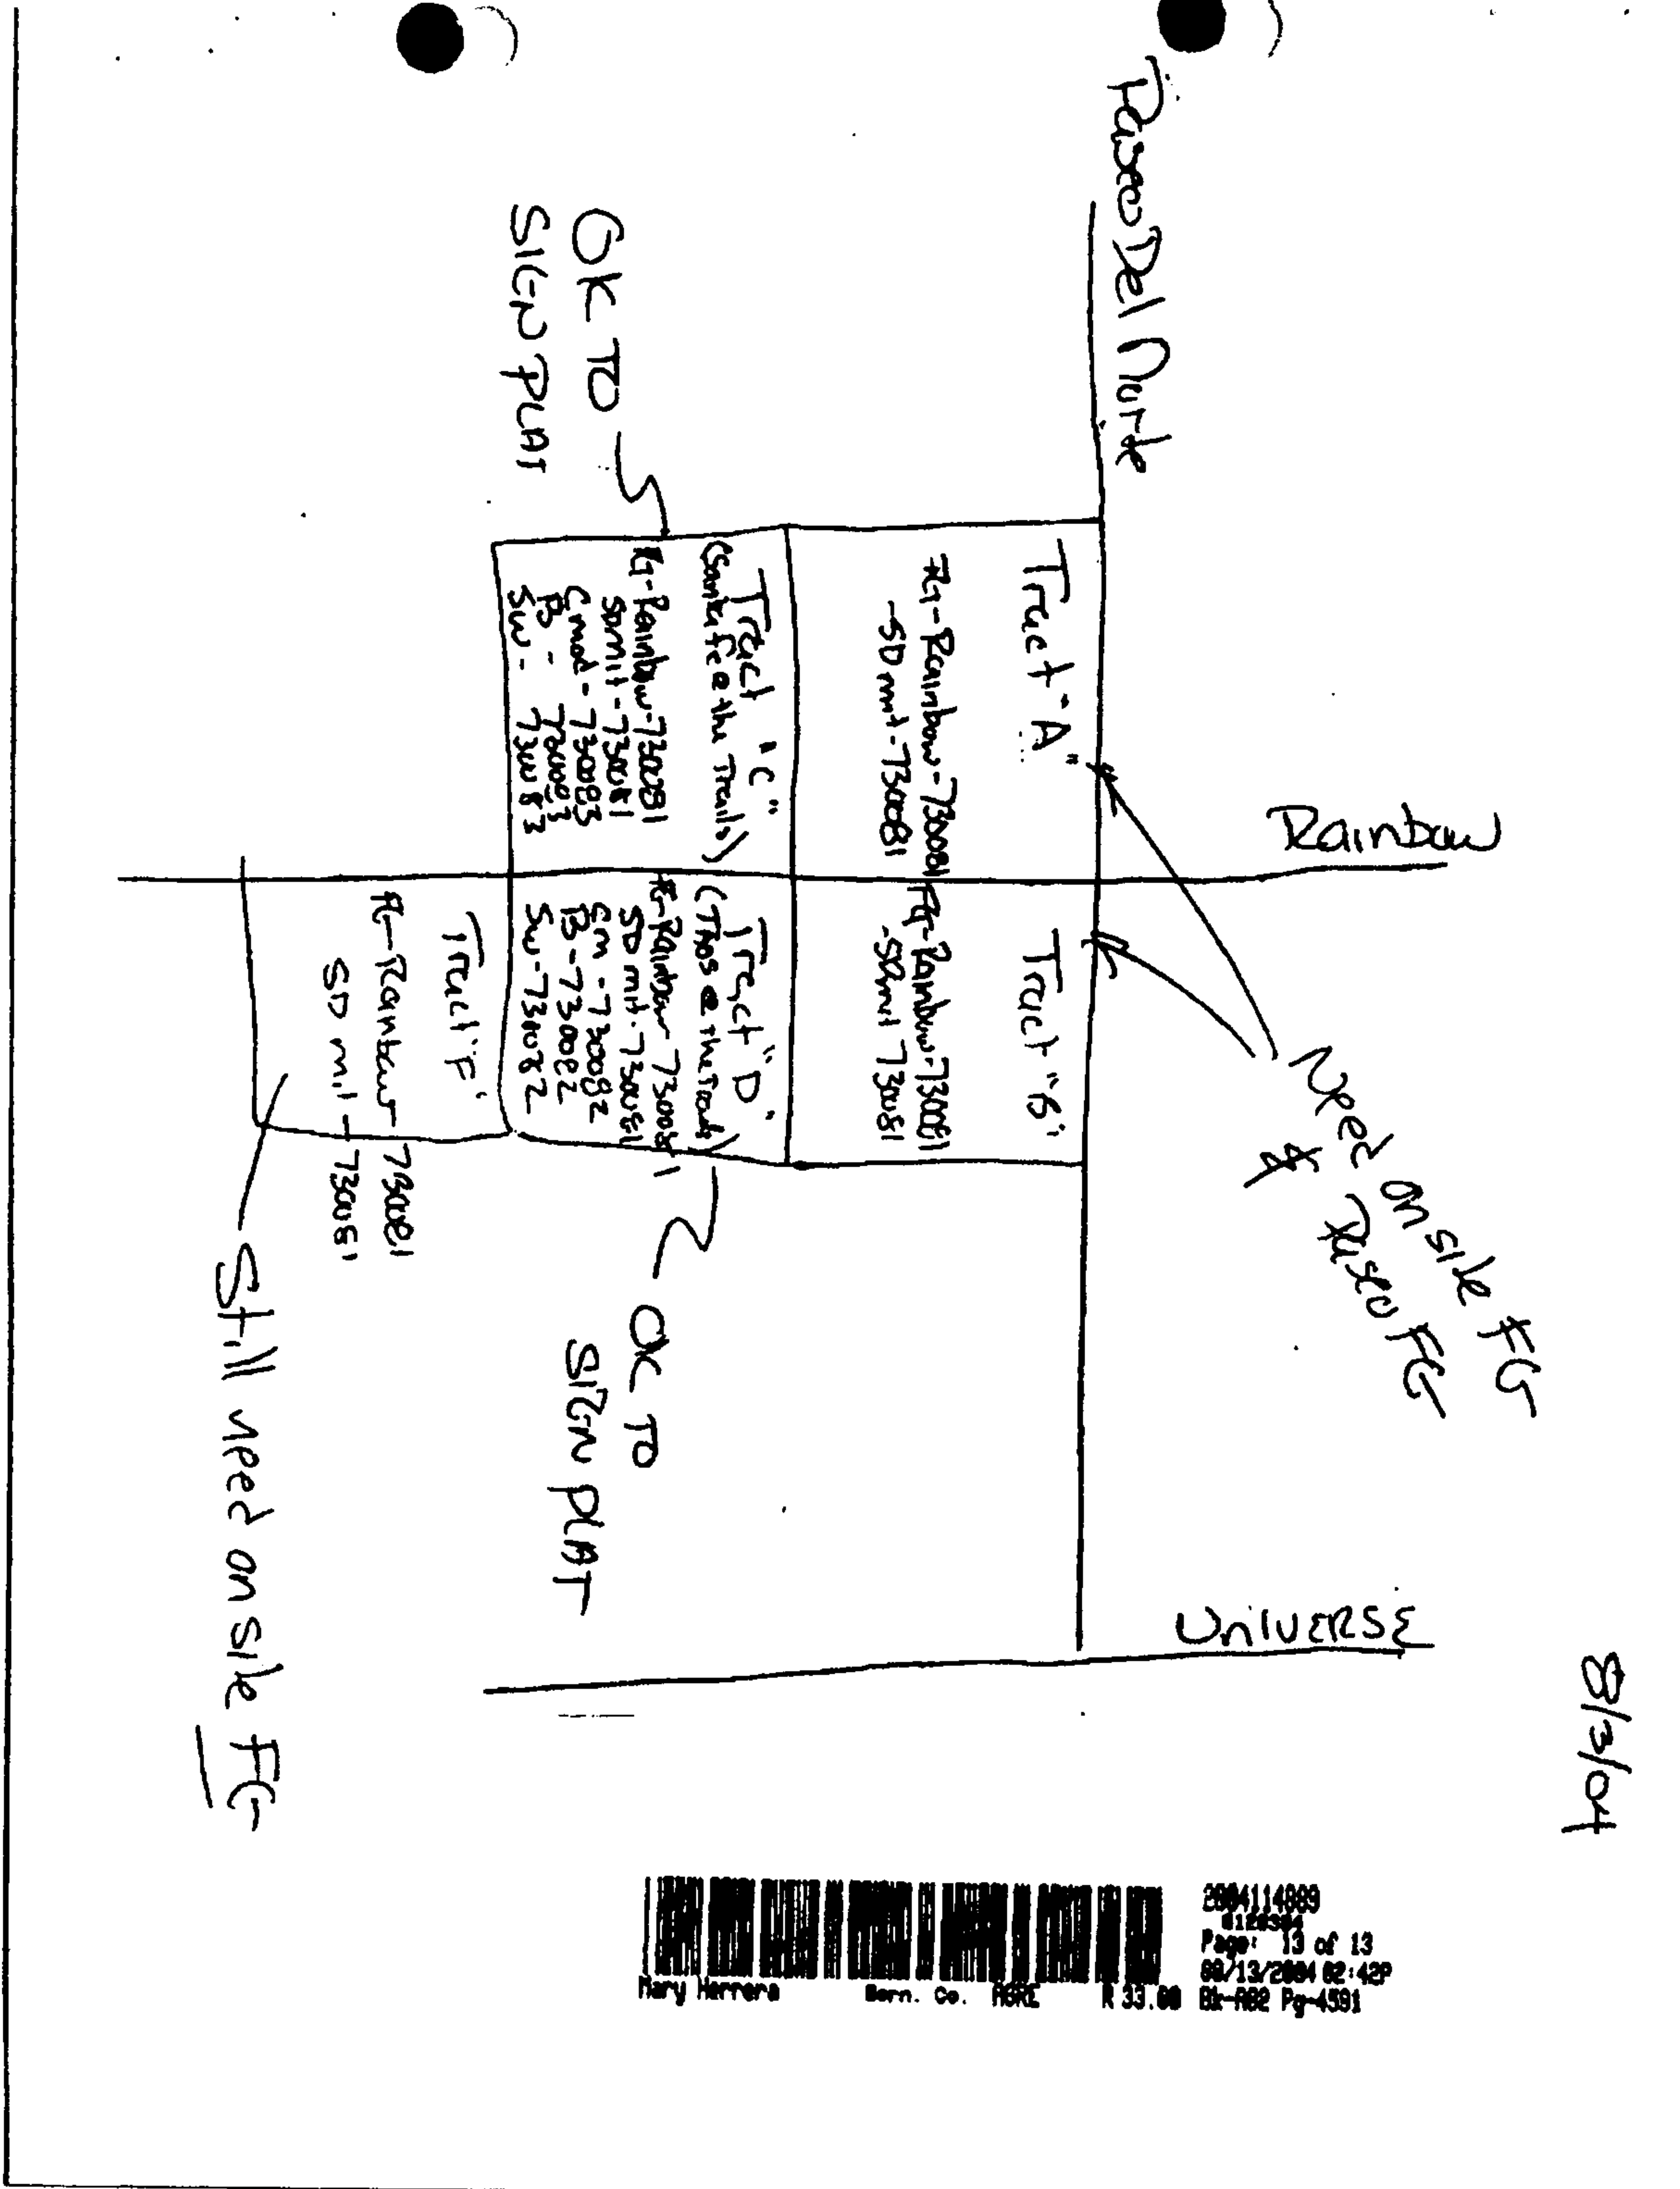 8/3/04
Rainbow
UNIVERSE
Need on site FG
& Paseo FG
Paseo Del Norte
Tract "A"
FG-Rainbow-730081
-SD mit-730081
Tract "B"
FG-Rainbow-730081
-SD mit 730081
Tract "C"
(Santa fe @ the Trails)
FG-Rainbow-730081
SD mit-730081
Gmd-730083
B - 730083
SW - 730083
Tract "D"
(Taos @ the Trails)
FG-Rainbow-730081
SD mit-730081
Gm -730082
B-730082
SW-730082
OK TO
SIGN PLAT
OK TO
SIGN PLAT
Tract "F"
FG-Rainbow 730081
SD mit-730081
Still need on site FG
2004114889
Page: 13 of 13
08/13/2004 02:42P
Mary Herrera Bern. Co. AGRE R 33.00 Bk-A82 Pg-4591